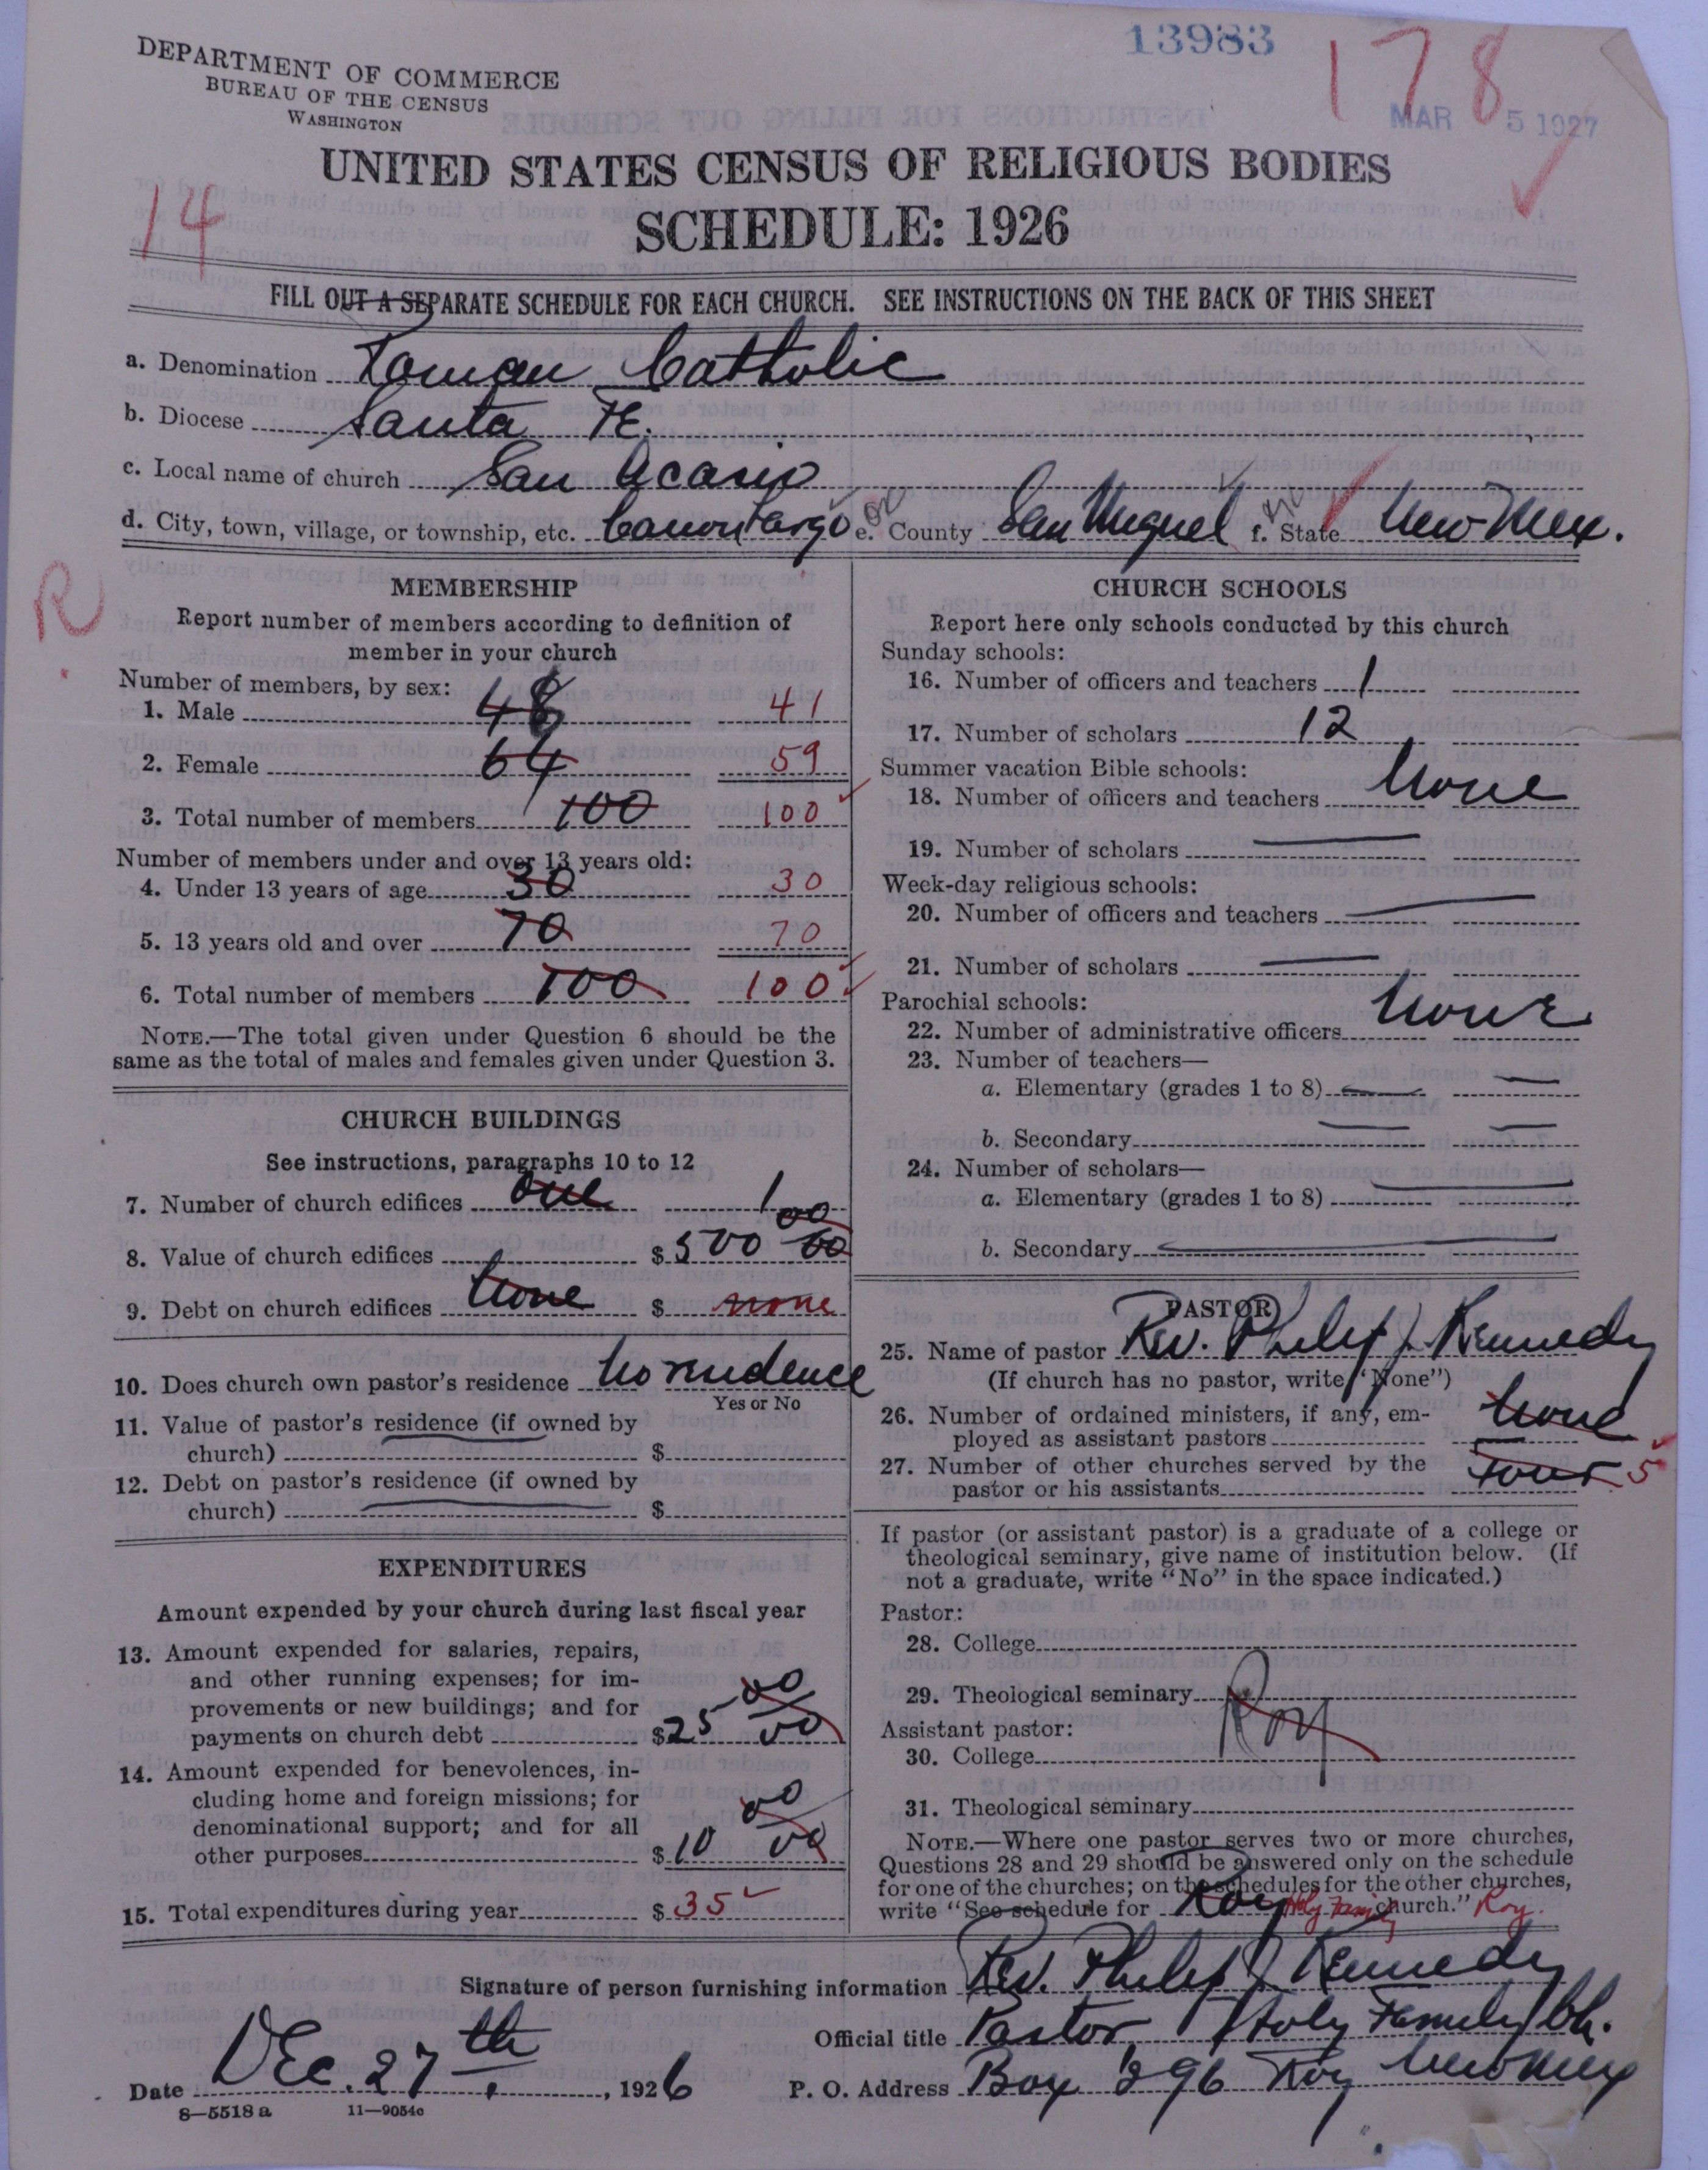 13983
178
DEPARTMENT OF COMMERCE
BUREAU OF THE CENSUS
WASHINGTON
MAR 5 1927
UNITED STATES CENSUS OF RELIGIOUS BODIES
14
SCHEDULE: 1926
FILL OUT A SEPARATE SCHEDULE FOR EACH CHURCH. SEE INSTRUCTIONS ON THE BACK OF THIS SHEET
a. Denomination Roman Catholic
b. Diocese Santa Fe.
c. Local name of church San Acasio
d. City, town, village, or township, etc. Canon Largo e. County San Miguel f. State New Mex.
R
MEMBERSHIP
Report number of members according to definition of
member in your church
Number of members, by sex:
1. Male 48 41
2. Female 64 59
3. Total number of members 100 100
Number of members under and over 13 years old:
4. Under 13 years of age 30 30
5. 13 years old and over 70 70
6. Total number of members 100 100
NOTE.—The total given under Question 6 should be the
same as the total of males and females given under Question 3.
CHURCH BUILDINGS
See instructions, paragraphs 10 to 12
7. Number of church edifices one 1
8. Value of church edifices $ 500 00/00
9. Debt on church edifices None $ none
10. Does church own pastor's residence No residence
Yes or No
11. Value of pastor's residence (if owned by
church) $
12. Debt on pastor's residence (if owned by
church) $
EXPENDITURES
Amount expended by your church during last fiscal year
13. Amount expended for salaries, repairs,
and other running expenses; for im-
provements or new buildings; and for
payments on church debt $ 25 00/00
14. Amount expended for benevolences, in-
cluding home and foreign missions; for
denominational support; and for all
other purposes $ 10 00/00
15. Total expenditures during year $ 35
CHURCH SCHOOLS
Report here only schools conducted by this church
Sunday schools:
16. Number of officers and teachers 1
17. Number of scholars 12
Summer vacation Bible schools:
18. Number of officers and teachers None
19. Number of scholars
Week-day religious schools:
20. Number of officers and teachers
21. Number of scholars
Parochial schools:
22. Number of administrative officers None
23. Number of teachers—
a. Elementary (grades 1 to 8)
b. Secondary
24. Number of scholars—
a. Elementary (grades 1 to 8)
b. Secondary
PASTOR
25. Name of pastor Rev. Philip J. Kennedy
(If church has no pastor, write "None")
26. Number of ordained ministers, if any, em-
ployed as assistant pastors None
27. Number of other churches served by the
pastor or his assistants four 5
If pastor (or assistant pastor) is a graduate of a college or
theological seminary, give name of institution below. (If
not a graduate, write "No" in the space indicated.)
Pastor:
28. College
29. Theological seminary
Roy
Assistant pastor:
30. College
31. Theological seminary
NOTE.—Where one pastor serves two or more churches,
Questions 28 and 29 should be answered only on the schedule
for one of the churches; on the schedules for the other churches,
write "See schedule for Roy Holy Family church." Roy.
Signature of person furnishing information Rev. Philip J. Kennedy
Official title Pastor, Holy Family Ch.
Date Dec. 27th, 1926 P. O. Address Box 296 Roy New Mex
8—5518a 11—9054c